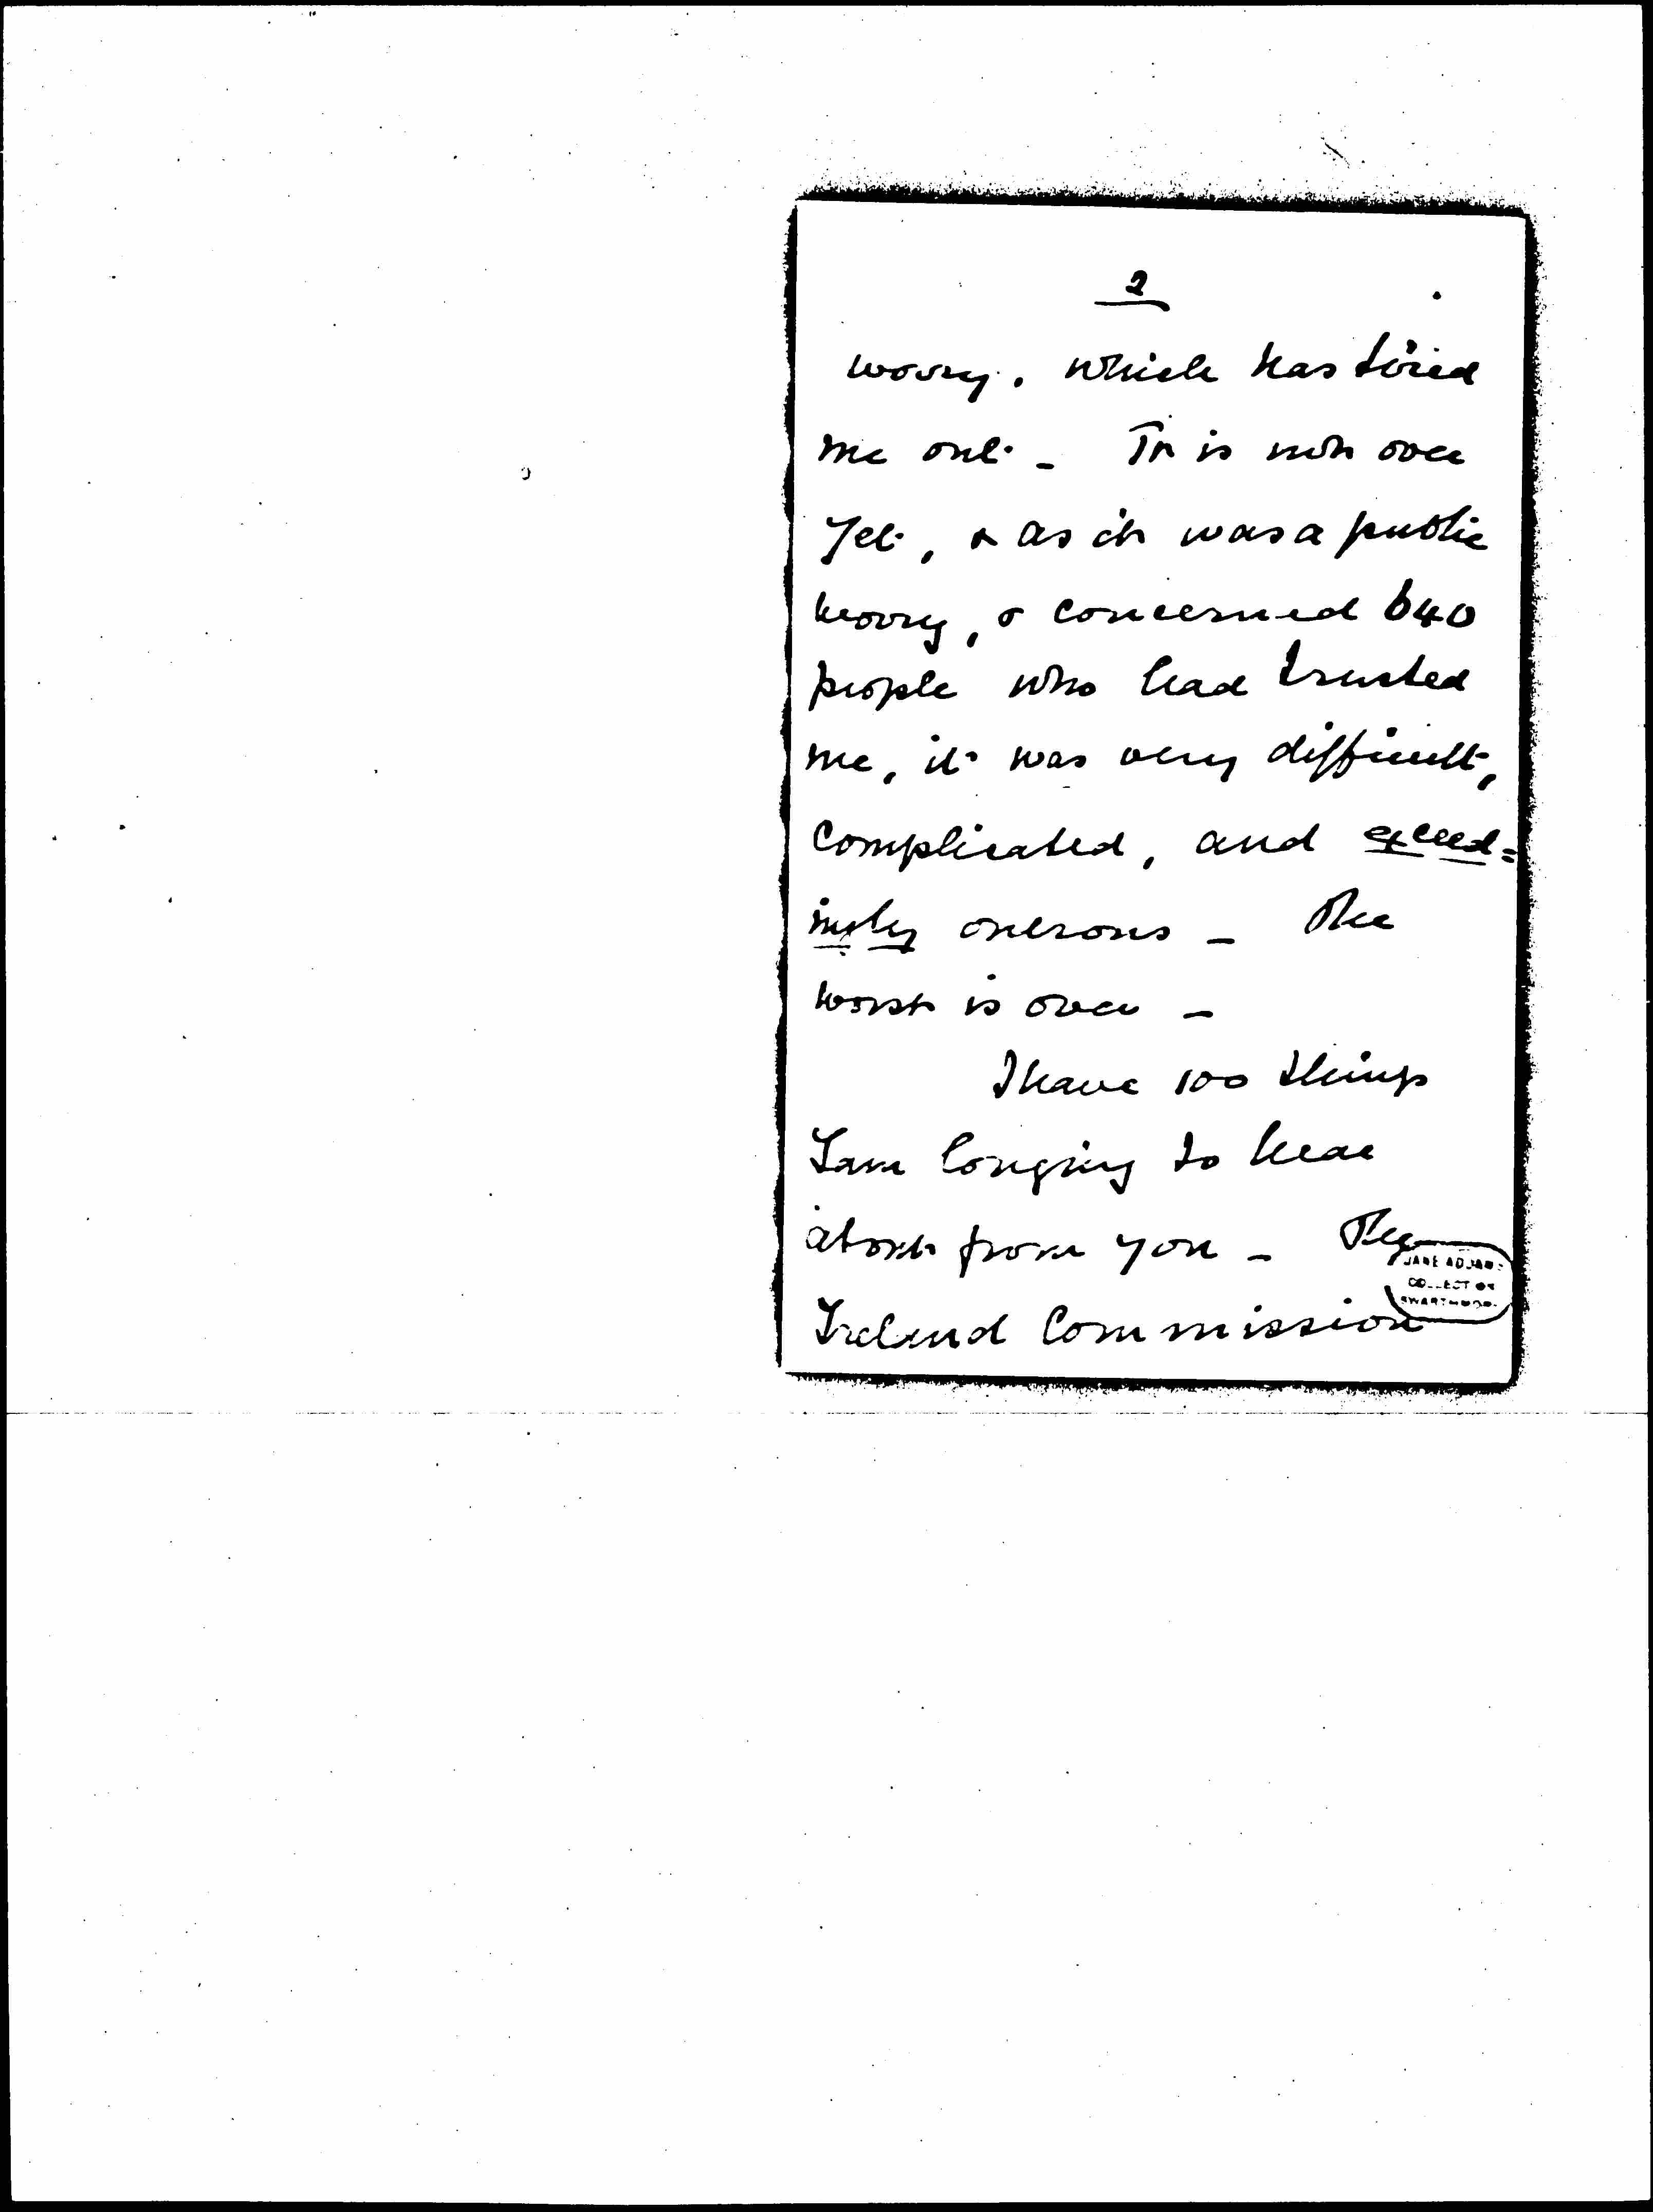 2
worry. which has tired
me out - It is not over
yet, & as it was a public
worry, & concerned 640
people who had trusted
me, it was very difficult,
complicated, and exceed=
ingly onerous - The
worst is over -
I have 100 things
I am longing to hear
about from you - The
JANE ADDAMS
COLLECTION
SWARTHMORE
Ireland Commission